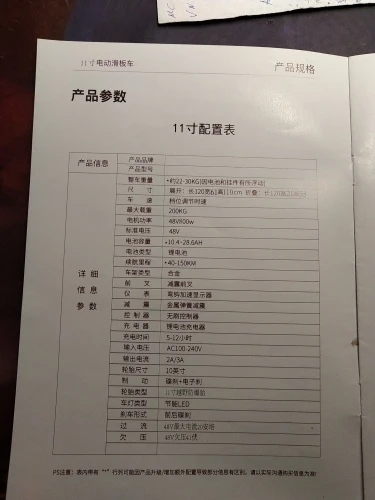 11寸电动滑板车 产品规格
产品参数
11寸配置表
产品信息 产品品牌
产品型号
整车重量 *约22-30KG(因电池和挂件有所浮动)
尺 寸 展开：长120宽61高110cm 折叠：长120
车 速 档位调节时速
最大载重 200KG
电机功率 48V800w
标准电压 48V
电池容量 *10.4-28.6AH
电池类型 锂电池
续航里程 *40-150KM
详细信息参数
车架类型 合金
前 叉 减震前叉
仪 表 弯钩加速显示器
减 震 金属弹簧减震
控 制 器 无刷控制器
充 电 器 锂电池充电器
充电时间 5-12小时
输入电压 AC100-240V
输出电流 2A/3A
轮胎尺寸 10英寸
制 动 碟刹+电子刹
轮胎类型 11寸越野防爆胎
车灯类型 节能LED
刹车形式 前后碟刹
过 流 48V最大电流20安培
欠 压 48V欠压41伏
PS注意：表内带有"*"行列可能因产品升级/增加额外配置导致部分信息有区别，请以实车沟通购买信息为准!